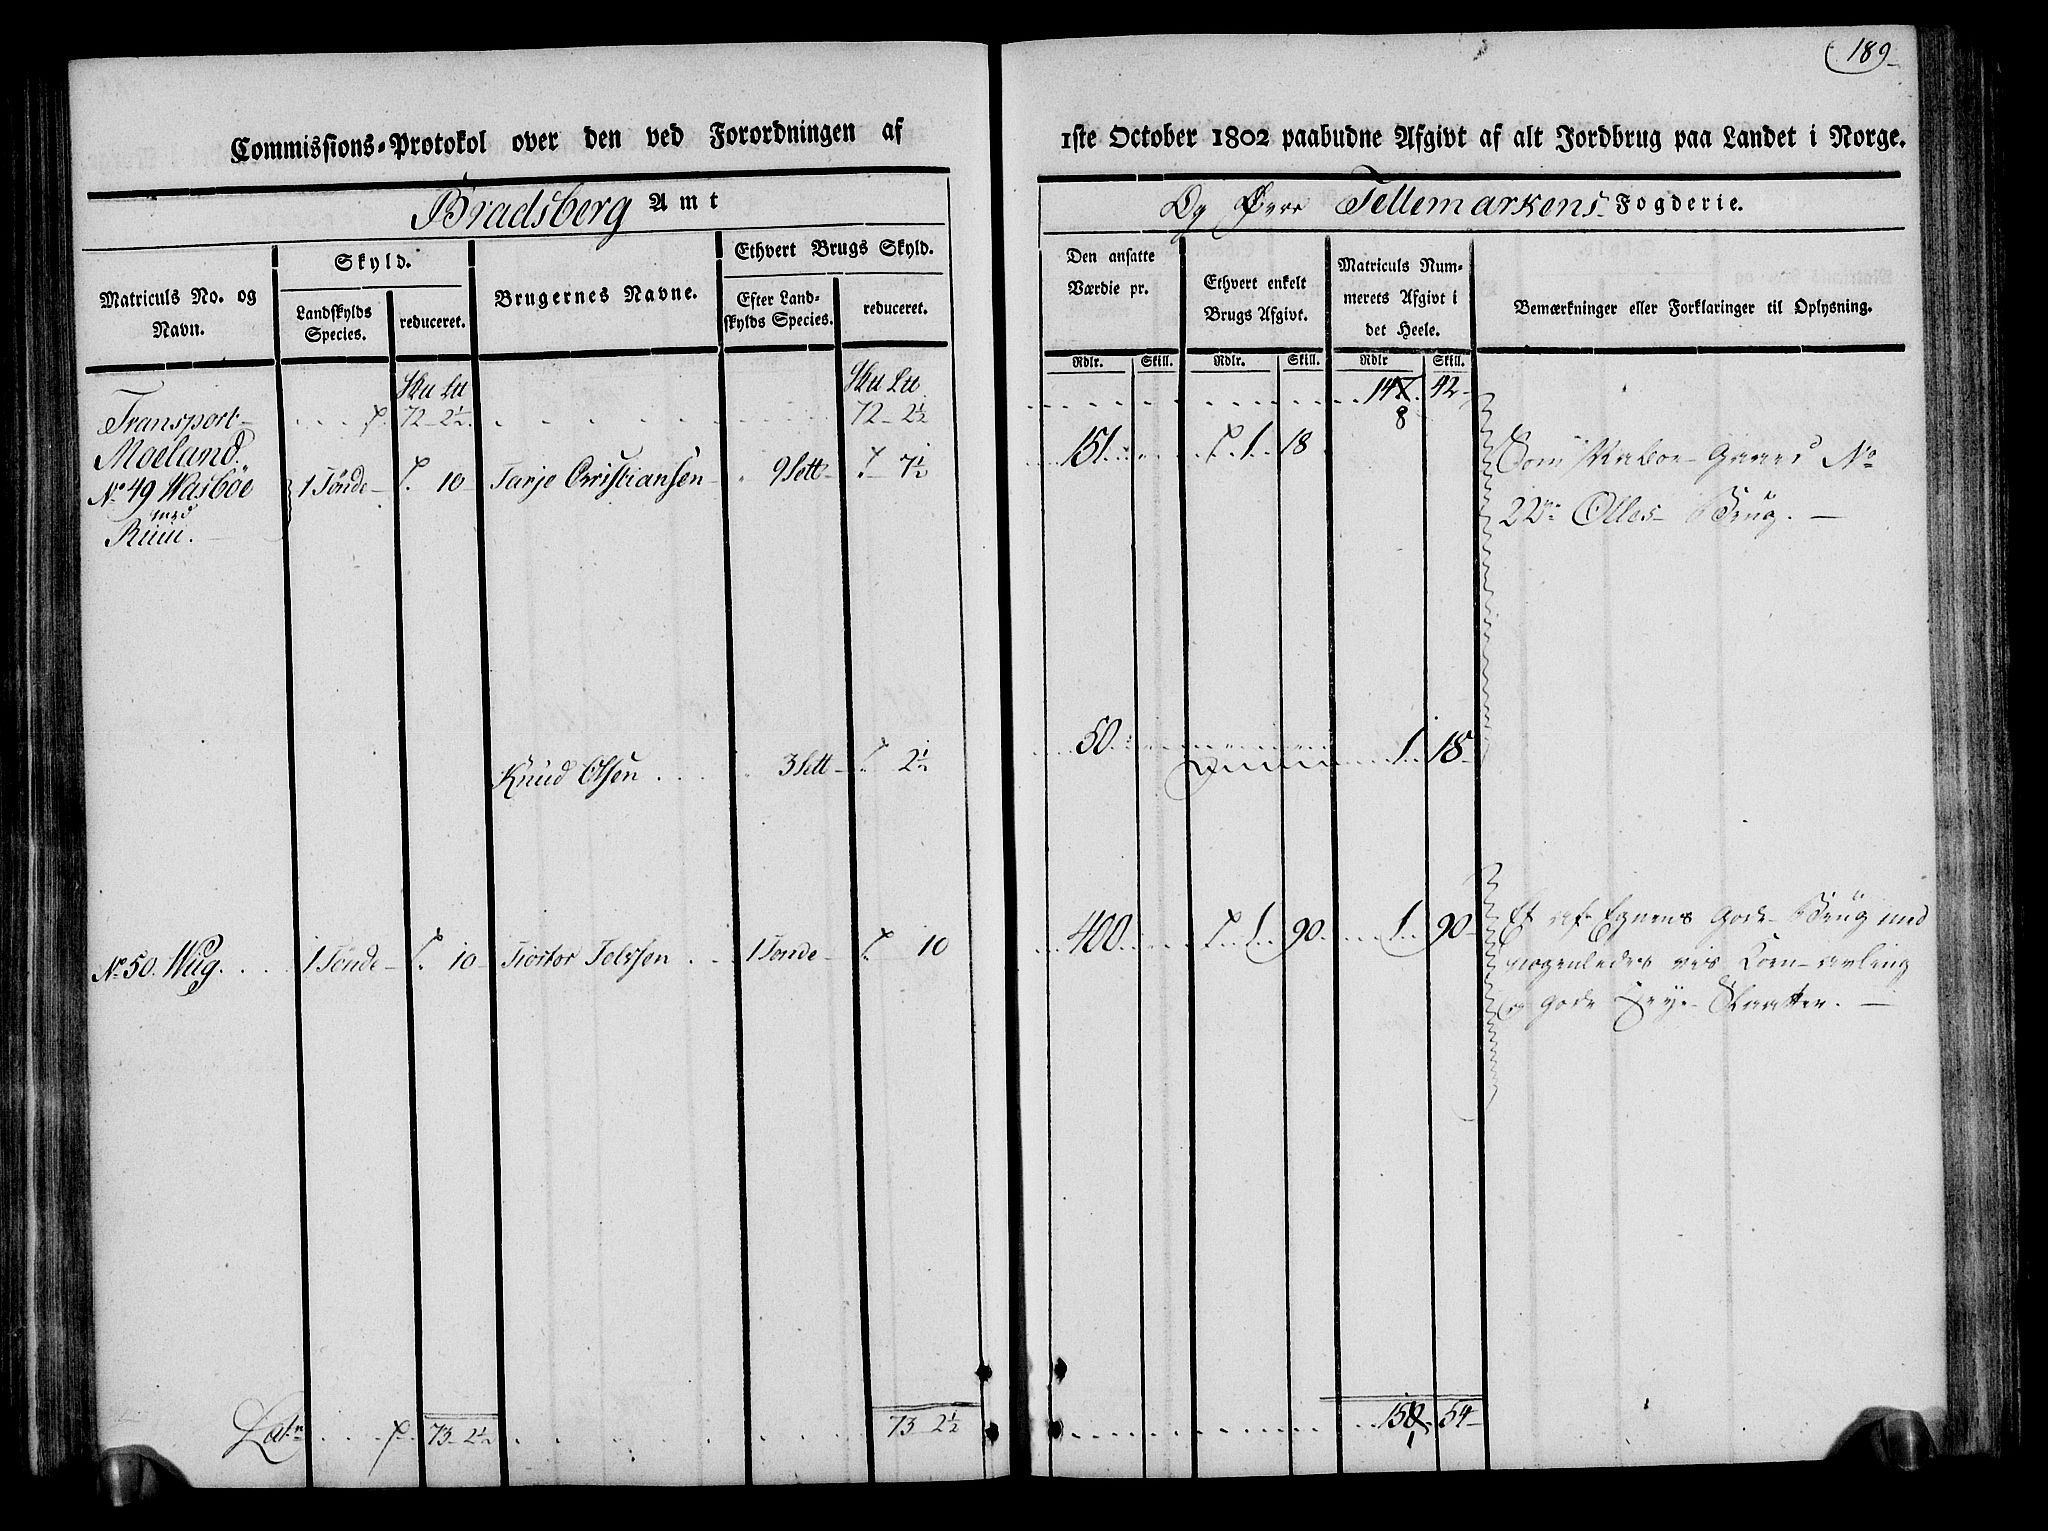 189
Commissions-Protokol over den ved Forordningen af
1ste October 1802 paabudne Afgivt af alt Jordbrug paa Landet i Norge.
Bradsberg Amt
Og Øvre Tellemarkens Fogderie.
Matriculs No. og Navn.
Skyld.
Landskylds Species.
reduceret.
Brugernes Navne.
Ethvert Brugs Skyld.
Efter Landskylds Species.
reduceret.
Den ansatte Værdie pr.
Ethvert enkelt Brugs Afgivt.
Matriculs Nummerets Afgivt i det Heele.
Bemærkninger eller Forklaringer til Oplysning.
Rdlr. Skill. Rdlr. Skill. Rdlr Skill.
Transport 72 2½ 72 2½ 147 42
8
Moeland
No 49 Wasböe 1 Tönde 10 Tarje Christiansen 9 Sett 7½ 151 1 18 Som Gaard No
med
Rui. 22 Olles Brug.
Knud Olsen 3 Sett 2½ 50 1 18
No 50. Wug. 1 Tönde 10 1 Tonde 10 400 1 90 1 90 Et af Egnens gode Brug med
nogenledes vis Korn-avling
og gode Slaatter.
Lat. 73 2½ 73 2½ 150 54
1